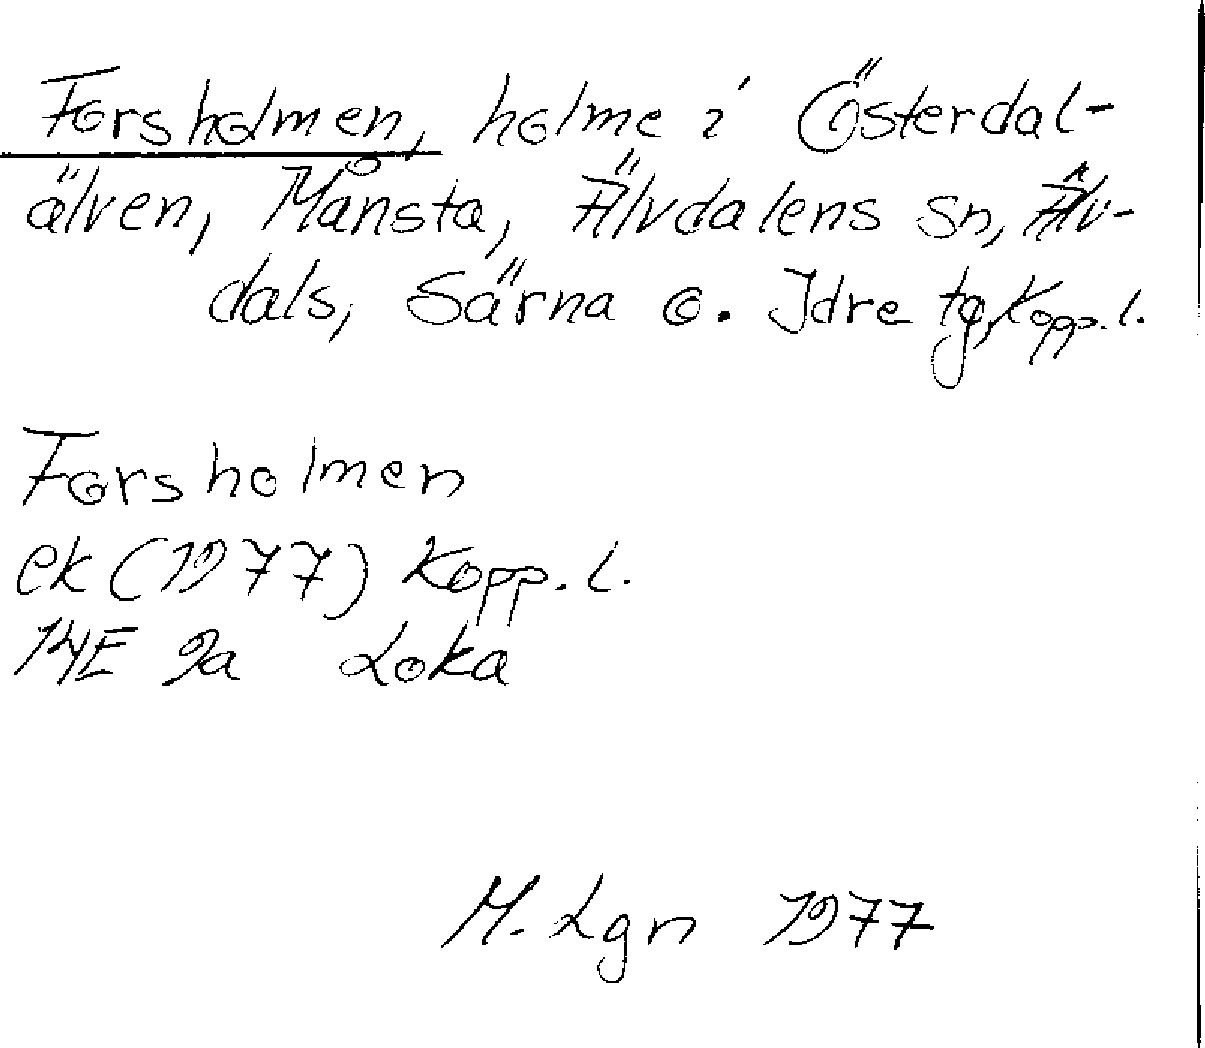 Forsholmen, holme i Österdal-
älven, Månsta, Älvdalens sn, Älv-
dals, Särna o. Idre tg, Kopp. l.
Forsholmen
ek (1977) Kopp. l.
14E 9a Loka
M. Lgn 1977